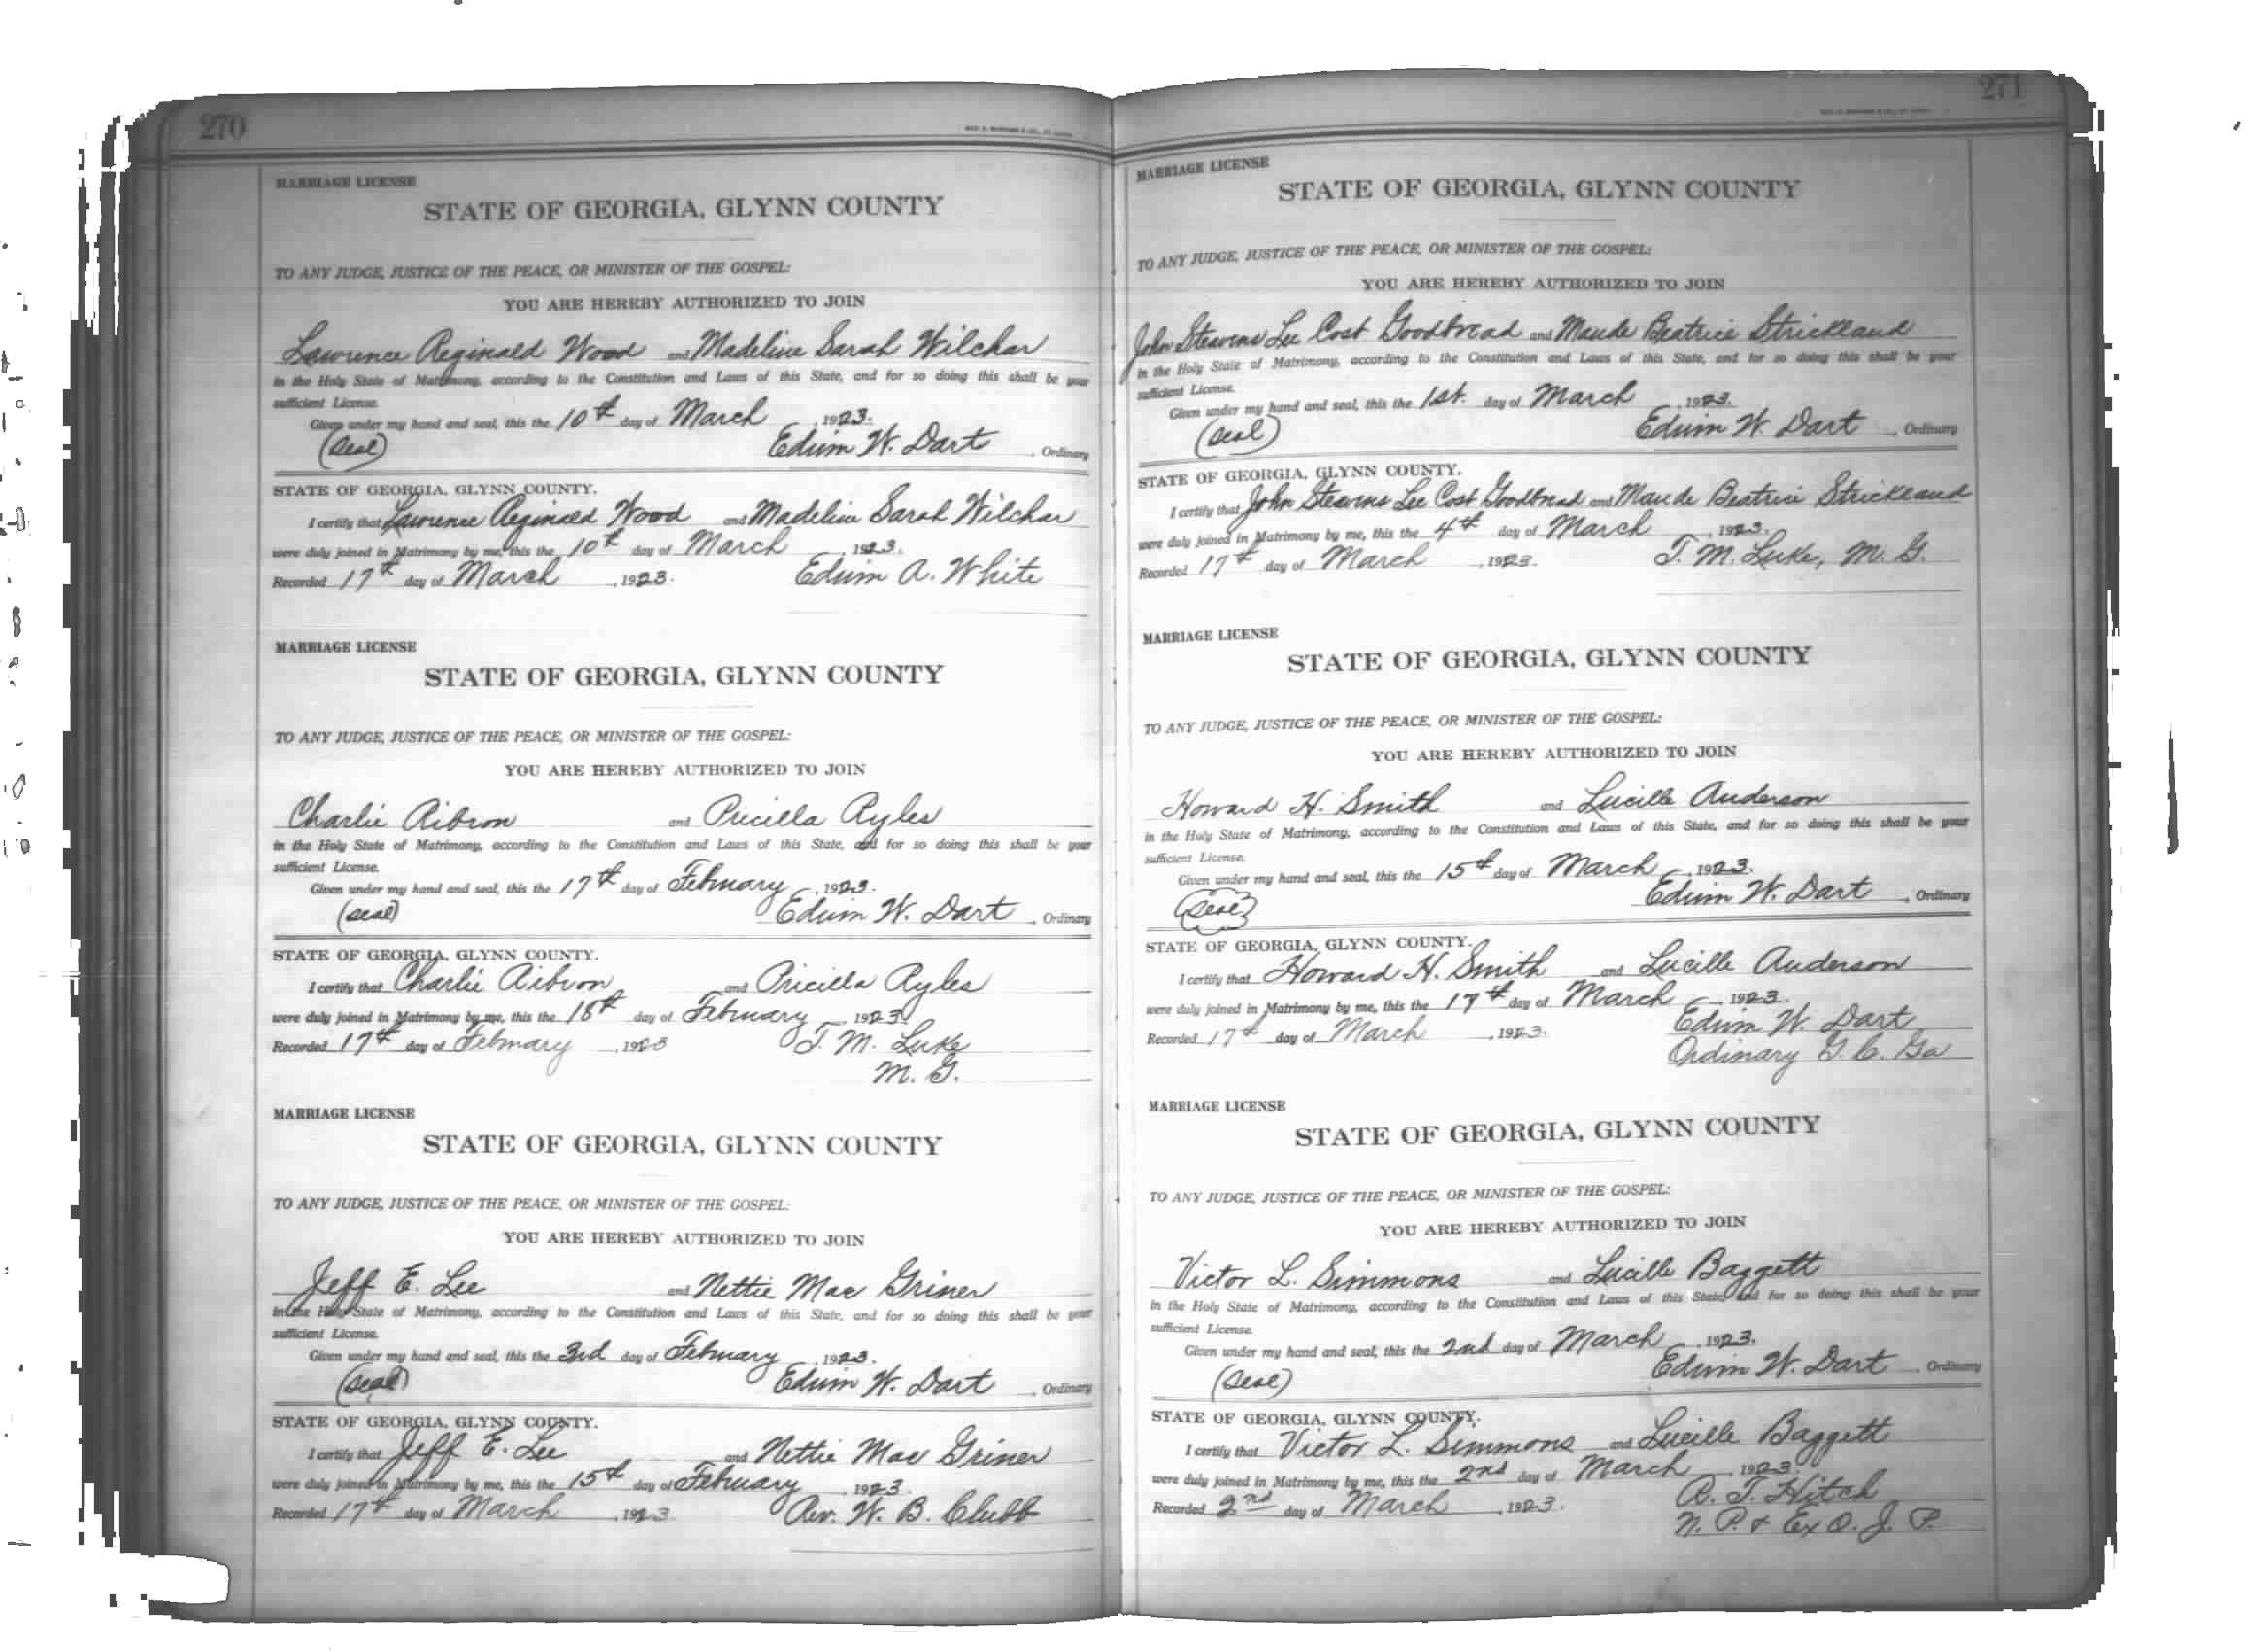 270
MARRIAGE LICENSE
STATE OF GEORGIA, GLYNN COUNTY
TO ANY JUDGE, JUSTICE OF THE PEACE, OR MINISTER OF THE GOSPEL:
YOU ARE HEREBY AUTHORIZED TO JOIN
Lawrence Reginald Wood and Madeline Sarah Wilchar
in the Holy State of Matrimony, according to the Constitution and Laws of this State, and for so doing this shall be your
sufficient License.
Given under my hand and seal, this the 10th day of March, 1923.
(seal) Edwin W. Dart, Ordinary
STATE OF GEORGIA, GLYNN COUNTY.
I certify that Lawrence Reginald Wood and Madeline Sarah Wilchar
were duly joined in Matrimony by me, this the 10th day of March, 1923.
Recorded 17th day of March, 1923. Edwin A. White
MARRIAGE LICENSE
STATE OF GEORGIA, GLYNN COUNTY
TO ANY JUDGE, JUSTICE OF THE PEACE, OR MINISTER OF THE GOSPEL:
YOU ARE HEREBY AUTHORIZED TO JOIN
Charlie Ribron and Pricilla Ryles
in the Holy State of Matrimony, according to the Constitution and Laws of this State, and for so doing this shall be your
sufficient License.
Given under my hand and seal, this the 17th day of February, 1923.
(seal) Edwin W. Dart, Ordinary
STATE OF GEORGIA, GLYNN COUNTY.
I certify that Charlie Ribron and Pricilla Ryles
were duly joined in Matrimony by me, this the 18th day of February, 1923.
Recorded 17th day of February, 1923 T. M. Luke
M. G.
MARRIAGE LICENSE
STATE OF GEORGIA, GLYNN COUNTY
TO ANY JUDGE, JUSTICE OF THE PEACE, OR MINISTER OF THE GOSPEL:
YOU ARE HEREBY AUTHORIZED TO JOIN
Jeff E. Lee and Nettie Mae Griner
in the Holy State of Matrimony, according to the Constitution and Laws of this State, and for so doing this shall be your
sufficient License.
Given under my hand and seal, this the 3rd day of February, 1923.
(seal) Edwin W. Dart, Ordinary
STATE OF GEORGIA, GLYNN COUNTY.
I certify that Jeff E. Lee and Nettie Mae Griner
were duly joined in Matrimony by me, this the 15th day of February, 1923.
Recorded 17th day of March, 1923 Rev. W. B. Clubb
271
MARRIAGE LICENSE
STATE OF GEORGIA, GLYNN COUNTY
TO ANY JUDGE, JUSTICE OF THE PEACE, OR MINISTER OF THE GOSPEL:
YOU ARE HEREBY AUTHORIZED TO JOIN
John Stevens Lee Cost Goodbread and Maude Beatrice Strickland
in the Holy State of Matrimony, according to the Constitution and Laws of this State, and for so doing this shall be your
sufficient License.
Given under my hand and seal, this the 1st. day of March, 1923.
(seal) Edwin W. Dart, Ordinary
STATE OF GEORGIA, GLYNN COUNTY.
I certify that John Stevens Lee Cost Goodbread and Maude Beatrice Strickland
were duly joined in Matrimony by me, this the 4th day of March, 1923.
Recorded 17th day of March, 1923. T. M. Luke, M. G.
MARRIAGE LICENSE
STATE OF GEORGIA, GLYNN COUNTY
TO ANY JUDGE, JUSTICE OF THE PEACE, OR MINISTER OF THE GOSPEL:
YOU ARE HEREBY AUTHORIZED TO JOIN
Howard H. Smith and Lucille Anderson
in the Holy State of Matrimony, according to the Constitution and Laws of this State, and for so doing this shall be your
sufficient License.
Given under my hand and seal, this the 15th day of March, 1923.
(seal) Edwin W. Dart, Ordinary
STATE OF GEORGIA, GLYNN COUNTY.
I certify that Howard H. Smith and Lucille Anderson
were duly joined in Matrimony by me, this the 17th day of March, 1923.
Recorded 17th day of March, 1923. Edwin W. Dart
Ordinary G. C. Ga
MARRIAGE LICENSE
STATE OF GEORGIA, GLYNN COUNTY
TO ANY JUDGE, JUSTICE OF THE PEACE, OR MINISTER OF THE GOSPEL:
YOU ARE HEREBY AUTHORIZED TO JOIN
Victor L. Simmons and Lucille Baggett
in the Holy State of Matrimony, according to the Constitution and Laws of this State, and for so doing this shall be your
sufficient License.
Given under my hand and seal, this the 2nd day of March, 1923.
(seal) Edwin W. Dart, Ordinary
STATE OF GEORGIA, GLYNN COUNTY.
I certify that Victor L. Simmons and Lucille Baggett
were duly joined in Matrimony by me, this the 2nd day of March, 1923.
Recorded 2nd day of March, 1923. R. T. Hitch
N. P. & Ex O. J. P.